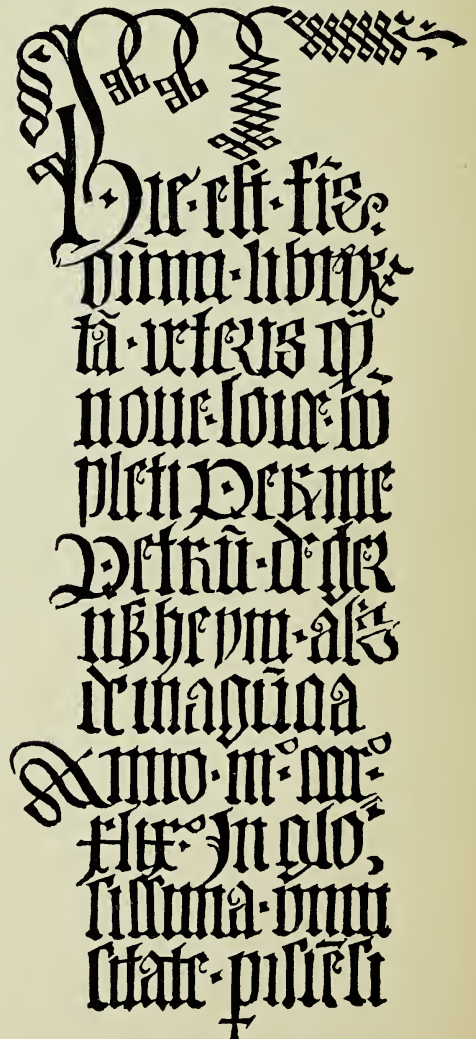 Hic · est · fīs
oīnm · libroꝝ
tā · veteris q̄
noue · loice · cō
pleti Per me
Petrū · de ger
nßheym · als
de magūcia
Anno · m° · cccc°
xlix° In glo
sissima · vniu
sitate · ꝑisiēsi